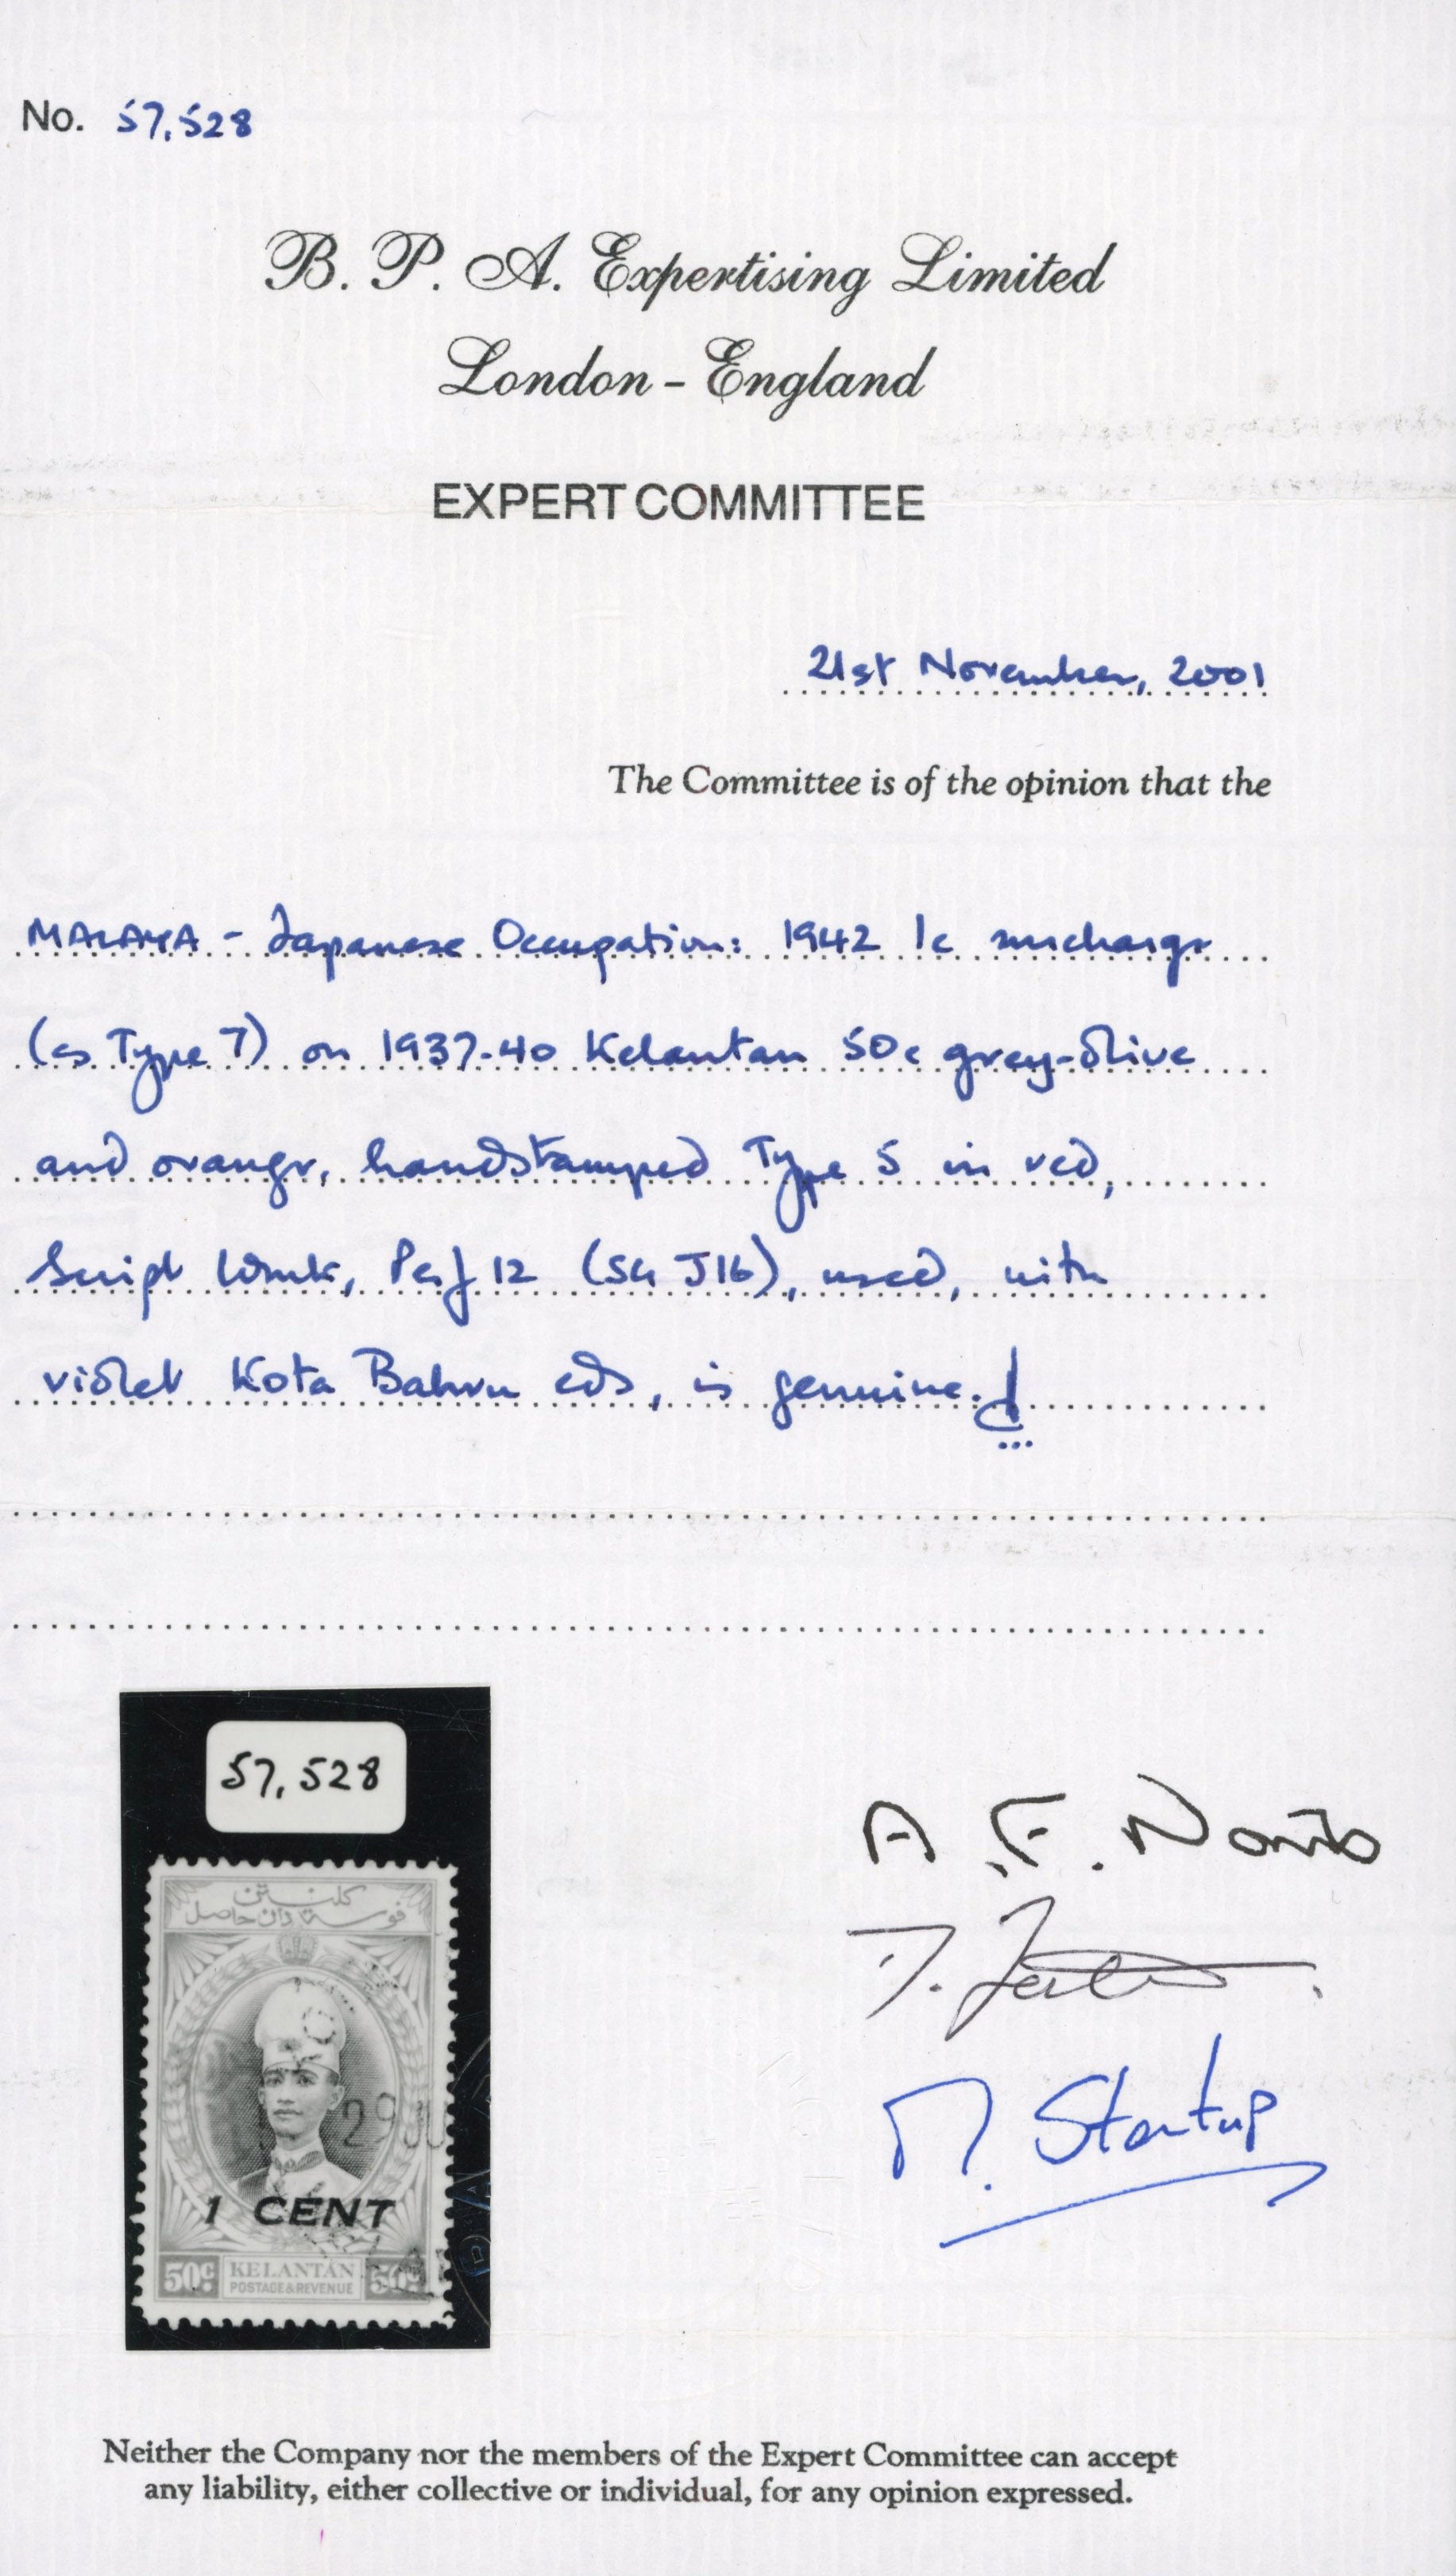 No. 57,528
B. P. A. Expertising Limited
London - England
EXPERT COMMITTEE
21st November, 2001
The Committee is of the opinion that the
MALAYA - Japanese Occupation: 1942 1c surcharge
(as Type 7) on 1937-40 Kelantan 50c grey-olive
and orange, handstamped Type 5 in red,
Script Wmk, Perf 12 (SG J16), used, with
violet Kota Bahru cds, is genuine.
57,528
كلنتن
فوست دان حاصل
29 JU
1 CENT
50c KELANTAN 50c
POSTAGE & REVENUE
A. F. Norris
M. Startup
Neither the Company nor the members of the Expert Committee can accept
any liability, either collective or individual, for any opinion expressed.